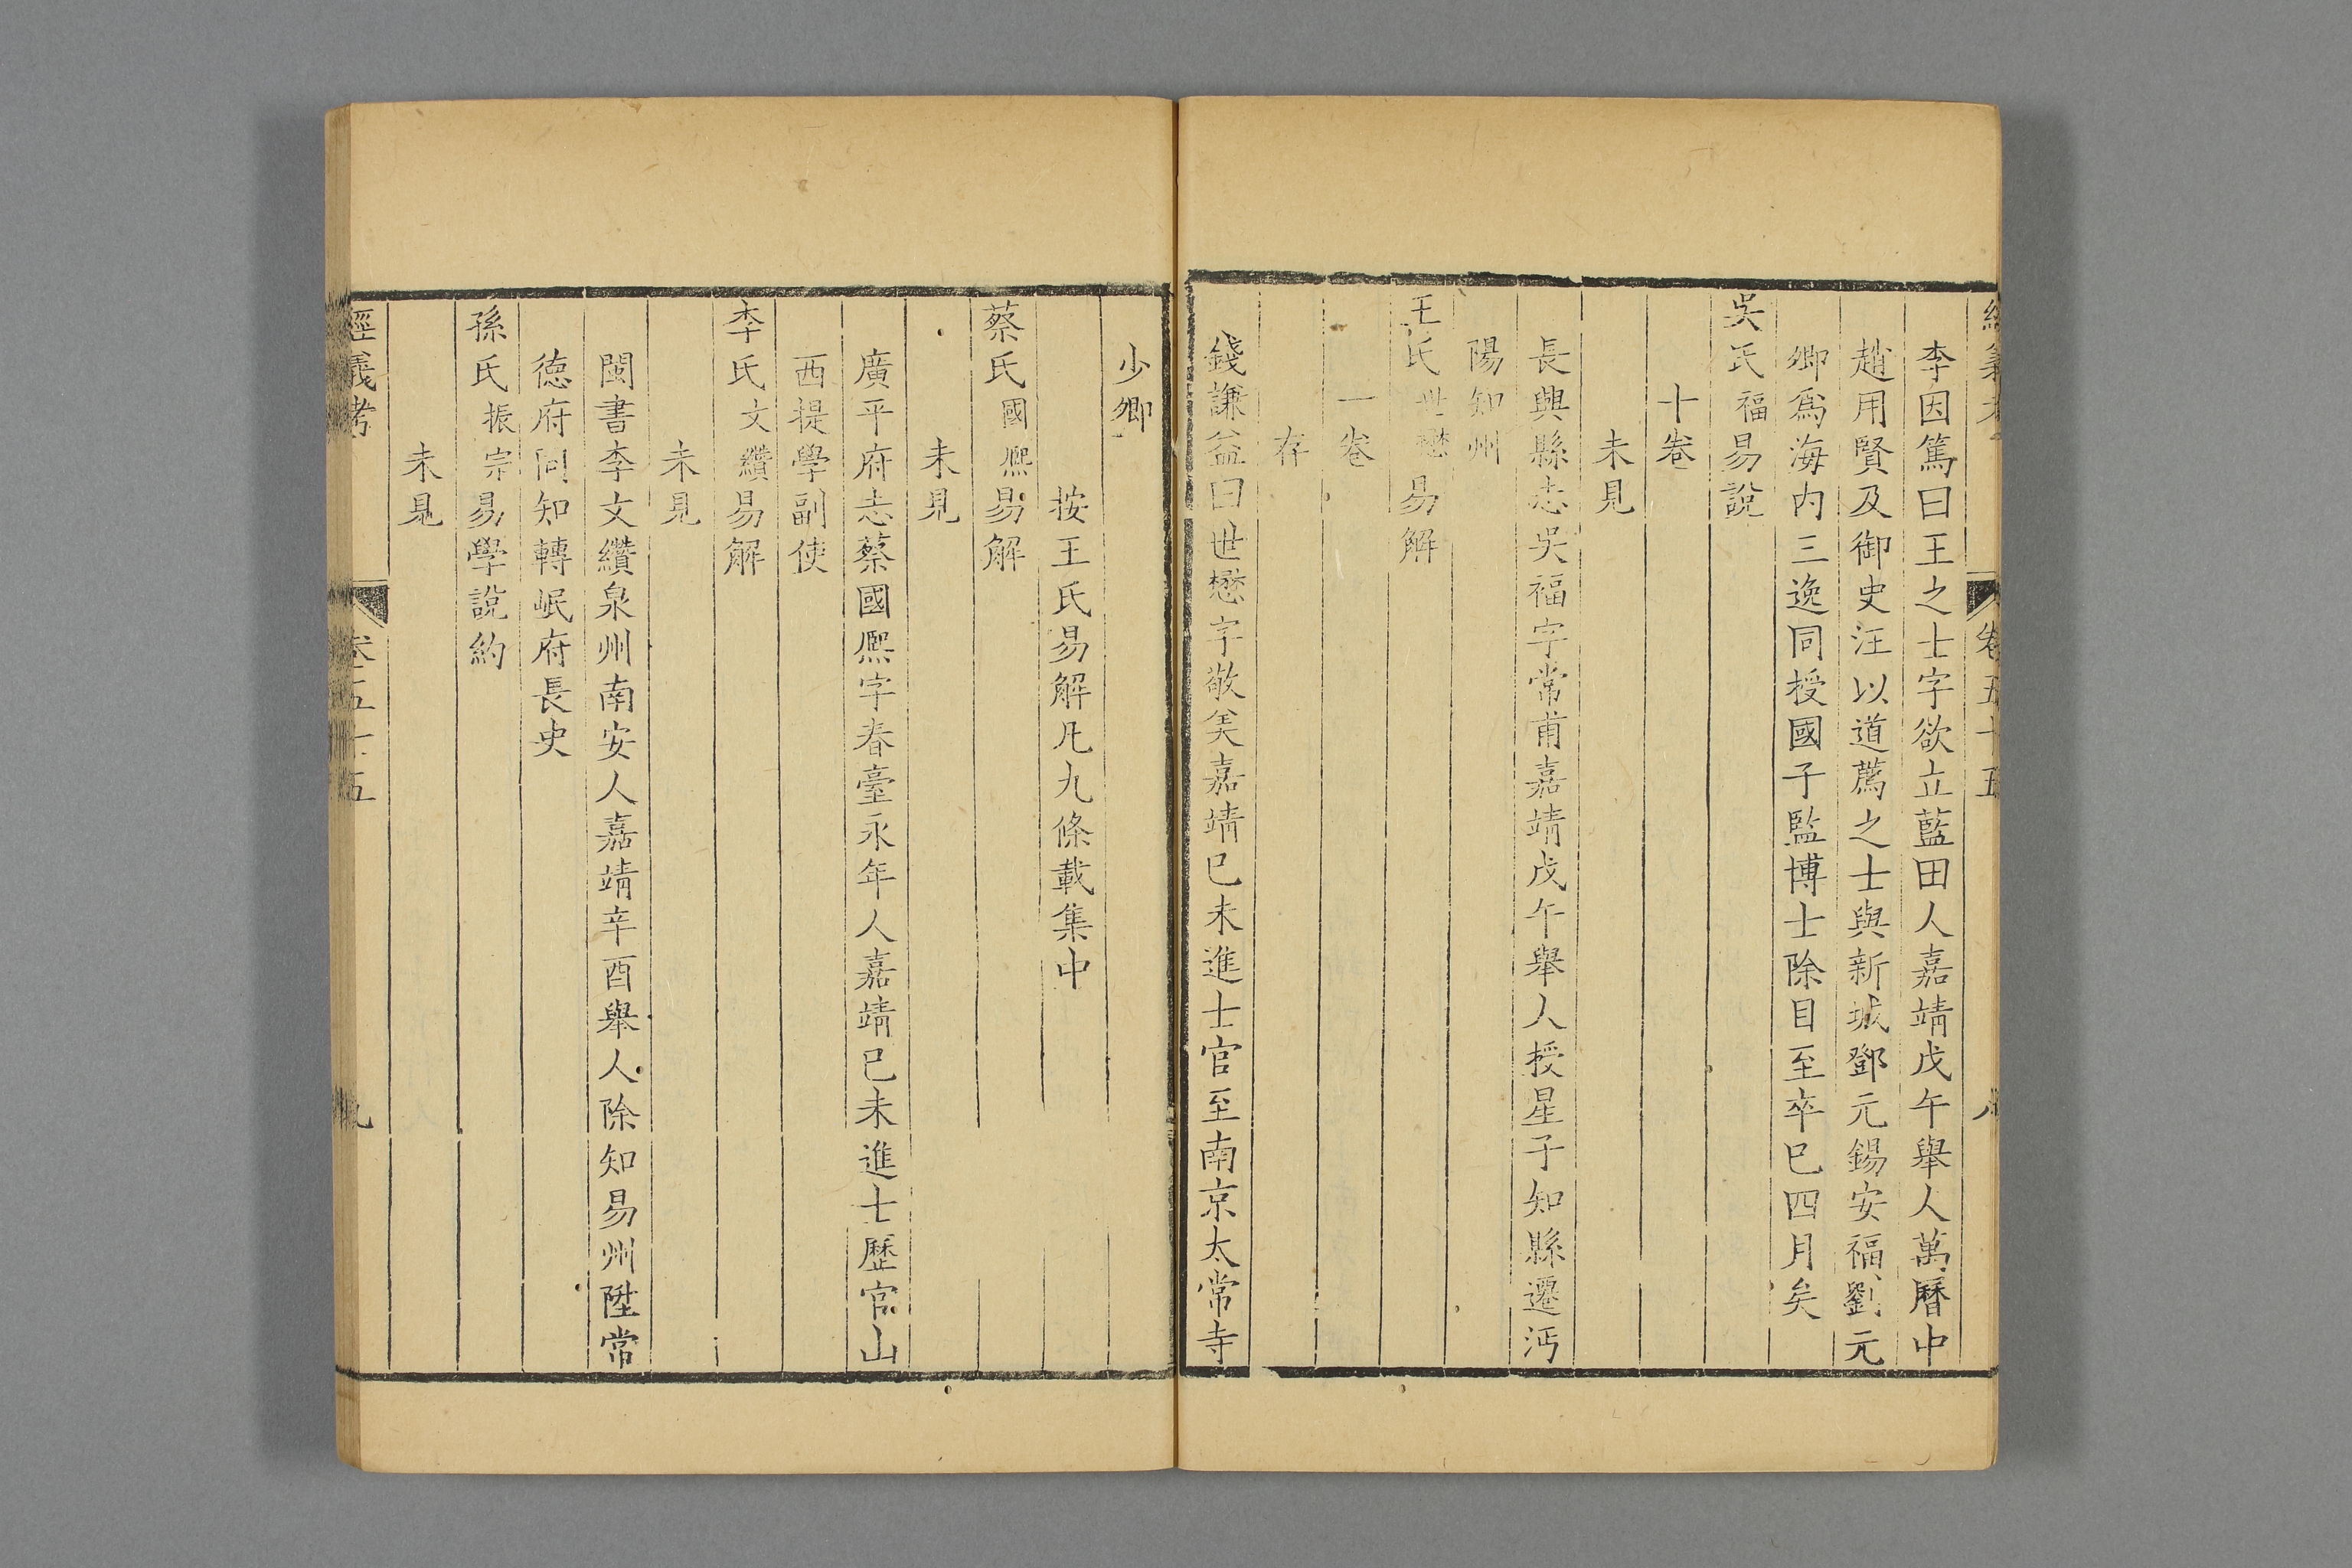 經義考 卷五十五 八
李因篤曰王之士字欲立藍田人嘉靖戊午舉人萬曆中
趙用賢及御史汪以道薦之士與新城鄧元錫安福劉元
卿爲海内三逸同授國子監博士除目至卒已四月矣
吳氏福易說
十卷
未見
長興縣志吳福字常甫嘉靖戊午舉人授星子知縣遷沔
陽知州
王氏世懋易解
一卷
存
錢謙益曰世懋字敬美嘉靖已未進士官至南京太常寺
少卿
按王氏易解凡九條載集中
蔡氏國熈易解
未見
廣平府志蔡國熈字春臺永年人嘉靖已未進士歷官山
西提學副使
李氏文纘易解
未見
閩書李文纘泉州南安人嘉靖辛酉舉人除知易州陞常
德府同知轉岷府長史
孫氏振宗易學說約
未見
經義考 卷五十五 九